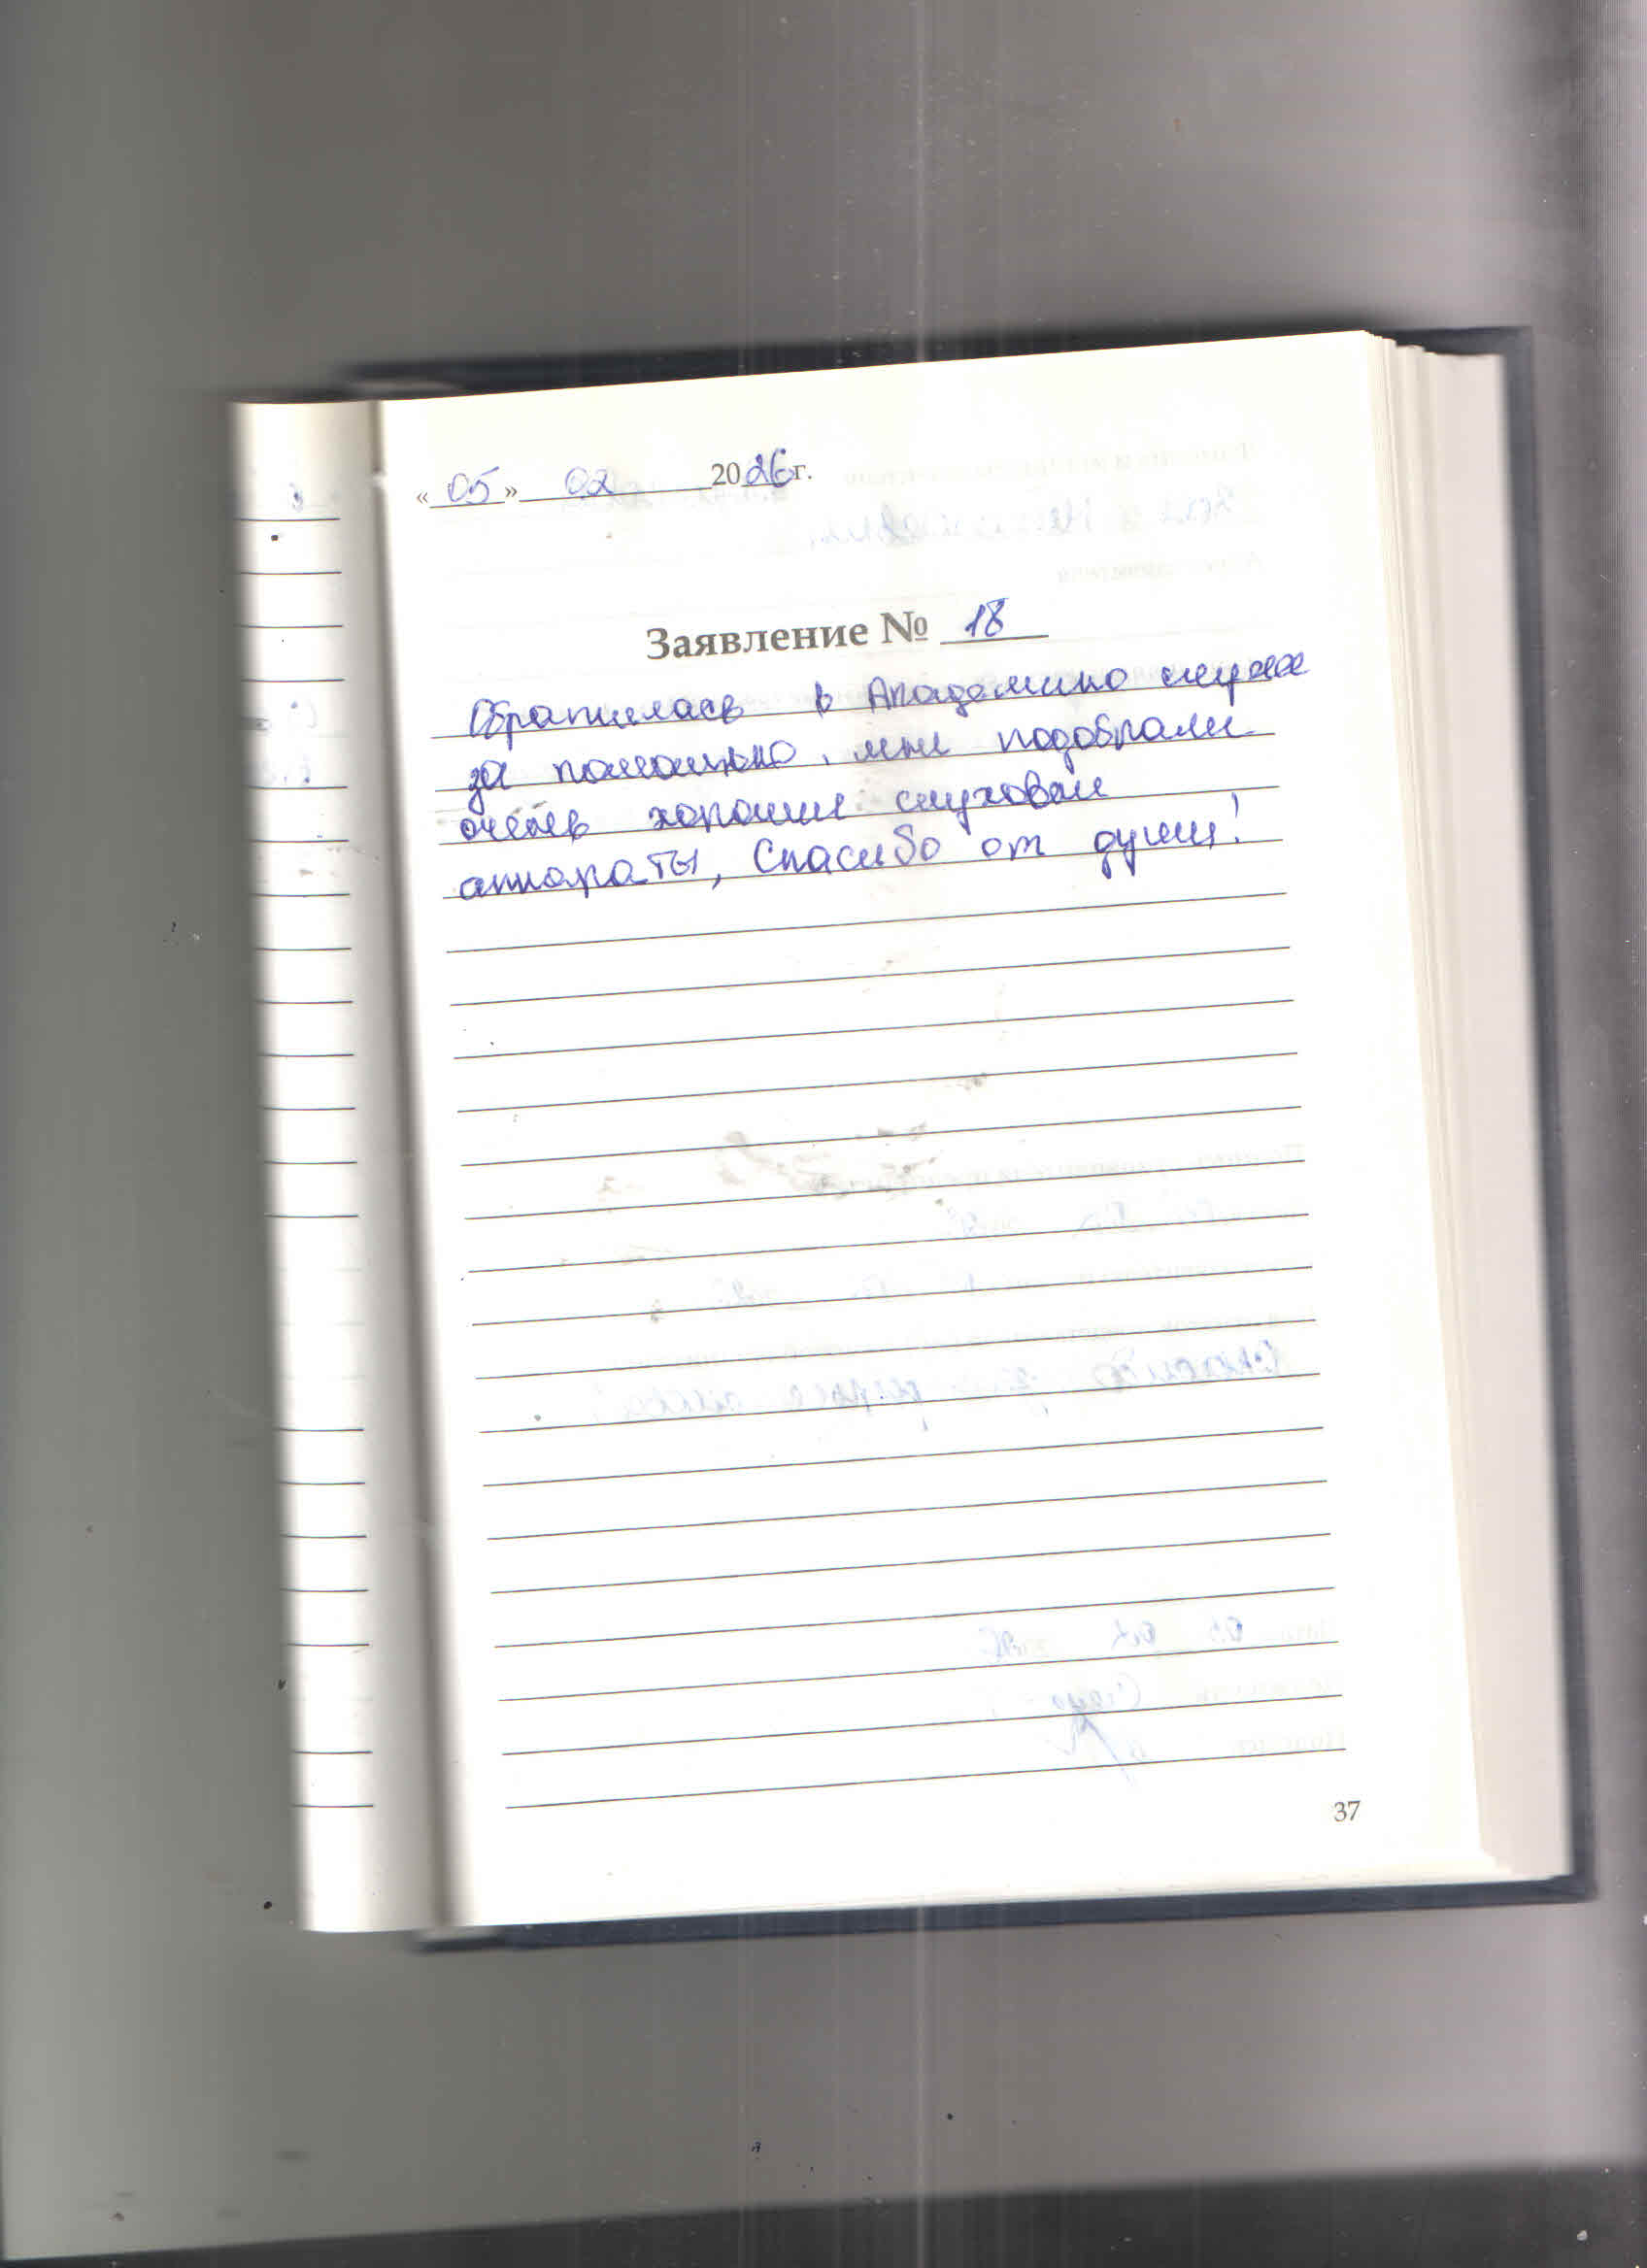 «05» 02 2026 г.
Заявление № 18
Обратилась в Академию слуха
за помощью, мне подобрали
очень хорошие слуховые
аппараты, Спасибо от души!
37